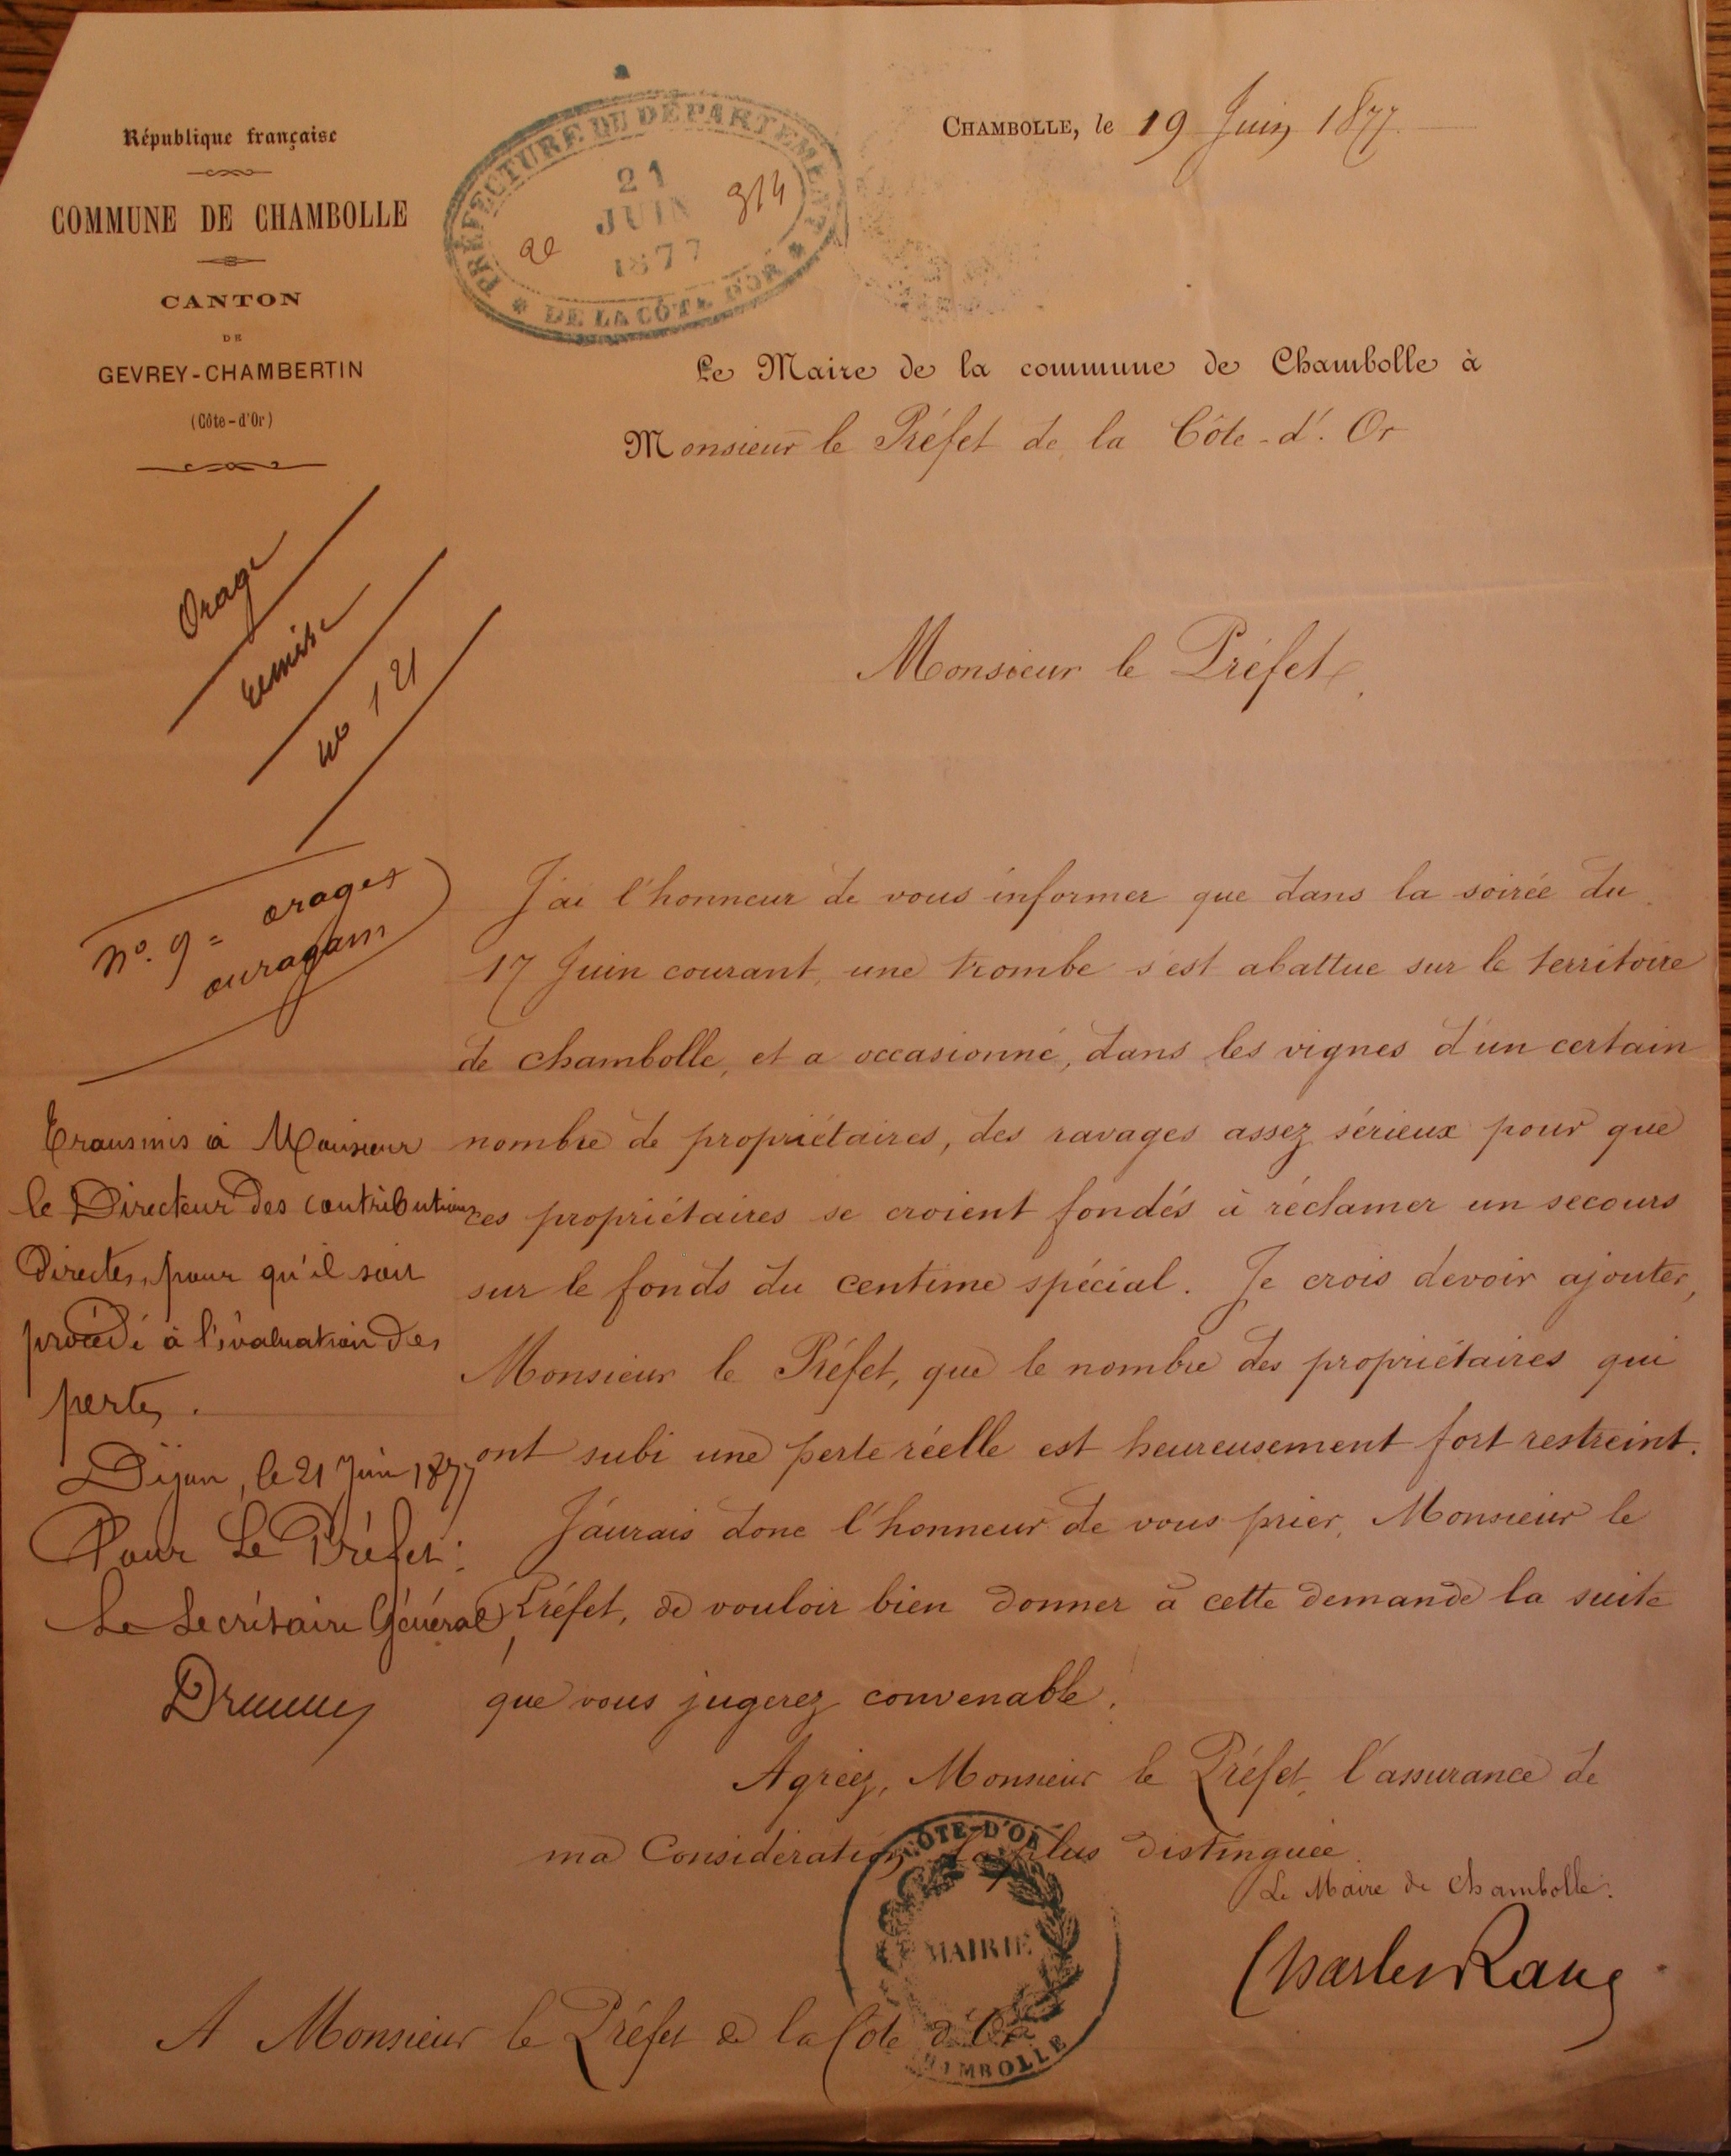 République française
COMMUNE DE CHAMBOLLE
CANTON
DE
GEVREY-CHAMBERTIN
(Côte-d'Or)
PRÉFECTURE DU DÉPARTEMENT
DE LA CÔTE D'OR
21
JUIN
1877
2e 314
CHAMBOLLE, le 19 Juin 1877.
Le Maire de la commune de Chambolle à
Monsieur le Préfet de la Côte-d'Or
Orage
remise
no 121
No. 9 = orages
ouragans
Transmis à Monsieur
le Directeur des contributions
directes, pour qu'il soit
procédé à l'évaluation des
pertes.
Dijon, le 21 Juin 1877
Pour Le Préfet:
Le Secrétaire Général,
Monsieur le Préfet,
J'ai l'honneur de vous informer que dans la soirée du
17 Juin courant, une trombe s'est abattue sur le territoire
de Chambolle, et a occasionné, dans les vignes d'un certain
nombre de propriétaires, des ravages assez sérieux pour que
ces propriétaires se croient fondés à réclamer un secours
sur le fonds du centime spécial. Je crois devoir ajouter,
Monsieur le Préfet, que le nombre des propriétaires qui
ont subi une perte réelle est heureusement fort restreint.
J'aurais donc l'honneur de vous prier, Monsieur le
Préfet, de vouloir bien donner à cette demande la suite
que vous jugerez convenable.
Agréez, Monsieur le Préfet, l'assurance de
ma Considération la plus distinguée.
Le Maire de Chambolle.
Charles
CÔTE-D'OR
MAIRIE
CHAMBOLLE
A Monsieur le Préfet de la Côte d'Or